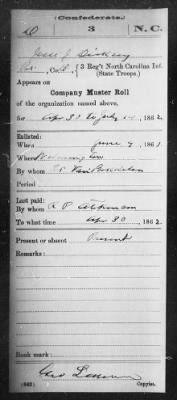 (Confederate.)
D 3 N.C.
Jesse J.
3 Reg't North Carolina Inf.
(State Troops.)
Appears on
Company Muster Roll
of the organization named above,
for Apr 30 to July 1862.
Enlisted:
When June 7, 1861
Where
By whom
Period
Last paid:
By whom R P
To what time Apr 30, 1862.
Present or absent Present
Remarks:
Book mark:
(642) Copyist.